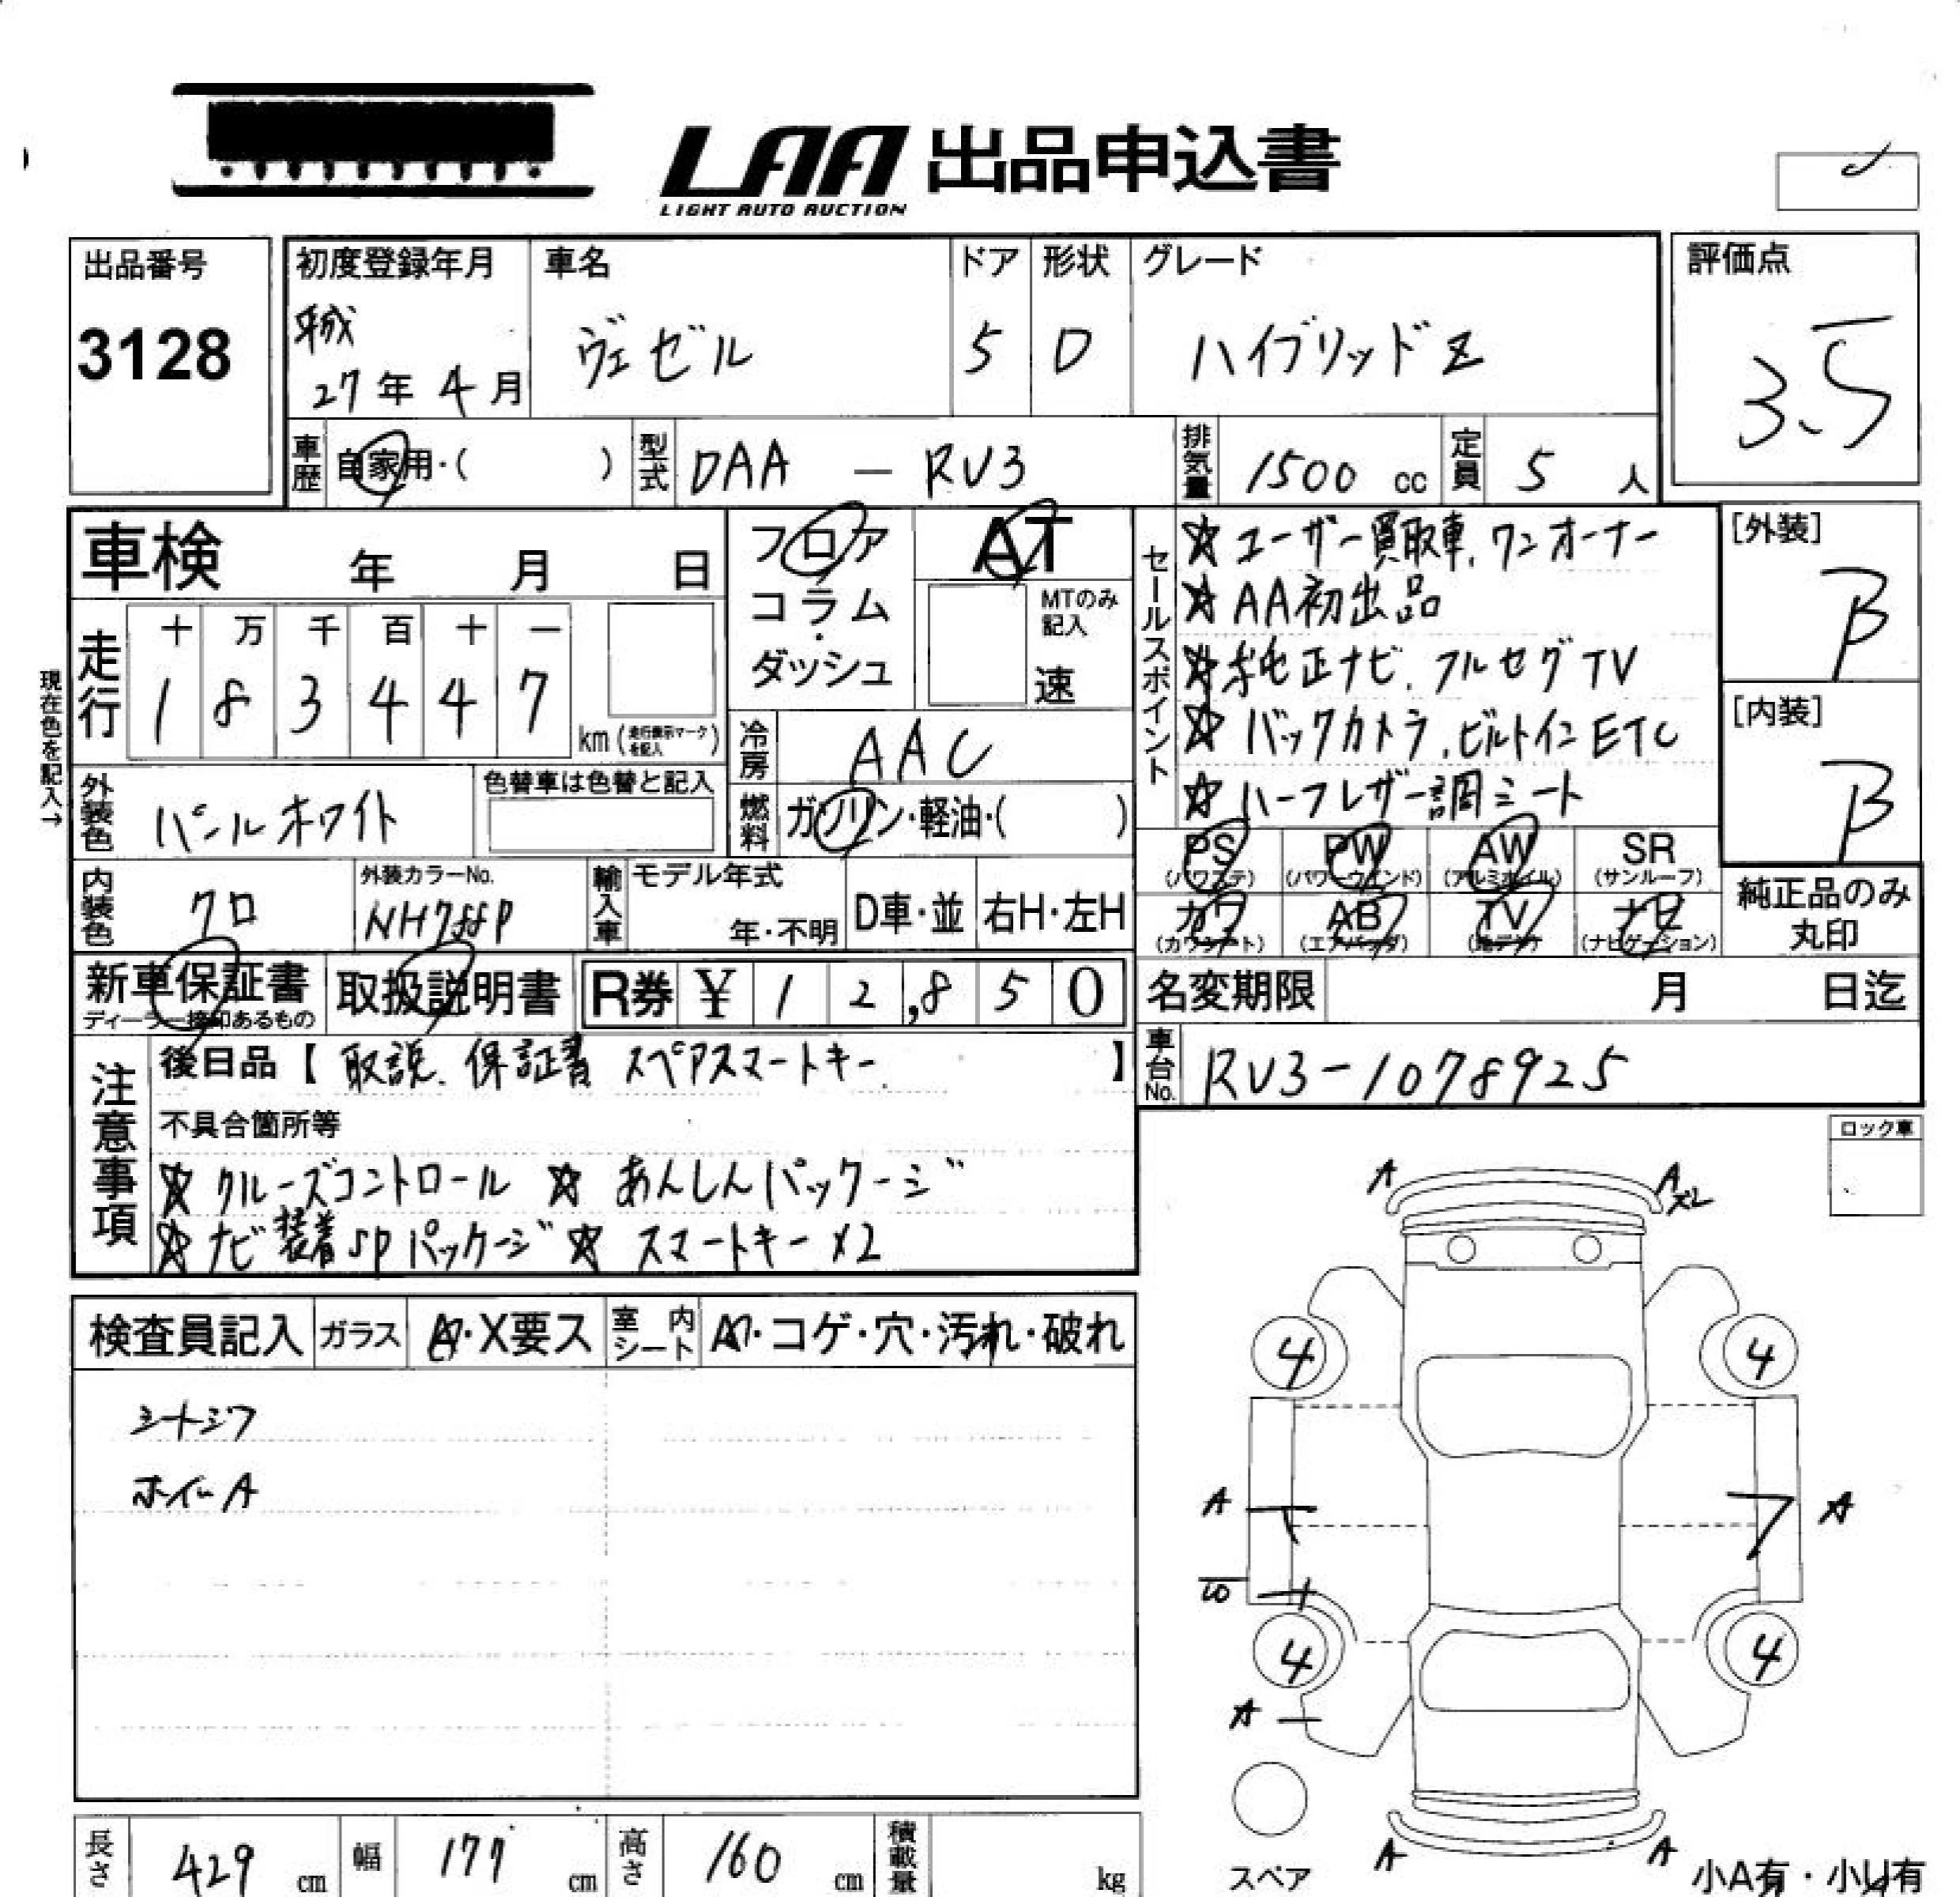 LAA 出品申込書
LIGHT AUTO AUCTION
出品番号
3128
初度登録年月
平成
27年 4月
車名
ヴェゼル
ドア
5
形状
D
グレード
ハイブリッドZ
評価点
3.5
車歴
自家用・( )
型式
DAA － RV3
排気量
1500 cc
定員
5 人
車検 年 月 日
フロア
コラム
・
ダッシュ
AT
MTのみ
記入
速
走行
十 万 千 百 十 一
1 8 3 4 4 7
km (走行表示マークを記入)
現在色を記入→
冷房
AAC
外装色
パールホワイト
色替車は色替と記入
燃料
ガソリン・軽油・( )
内装色
クロ
外装カラーNo.
輸入車
モデル年式
年・不明
D車・並
右H・左H
セールスポイント
☆ユーザー買取車、ワンオーナー
☆AA初出品
☆純正ナビ、フルセグTV
☆バックカメラ、ビルトインETC
☆ハーフレザー調シート
[外装]
B
[内装]
B
PS
(パワステ)
PW
(パワーウインド)
AW
(アルミホイル)
SR
(サンルーフ)
カワ
(カワシート)
AB
(エアバッグ)
TV
(地デジ)
ナビ
(ナビゲーション)
純正品のみ
丸印
新車保証書
ディーラー捺印あるもの
取扱説明書
R券 ¥ 1 2,8 5 0
名変期限 月 日迄
車台No.
RV3-1078925
注意事項
後日品【 取説、保証書 スペアスマートキー 】
不具合箇所等
☆ クルーズコントロール ☆ あんしんパッケージ
☆ ナビ装着SPパッケージ ☆ スマートキー×2
ロック車
検査員記入
ガラス
A・X要ス
室内シート
コゲ・穴・汚れ・破れ
シートシワ
ホイールA
A
A×2
4
4
A
A
4
4
A
A
A
スペア
小A有・小U有
長さ 429 cm
幅 177 cm
高さ 160 cm
積載量 kg